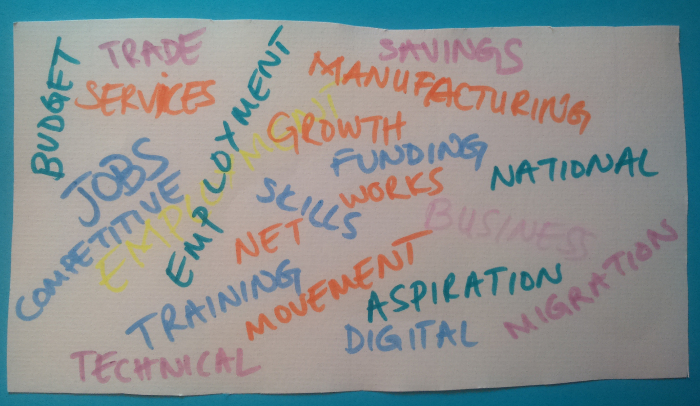 TRADE
SAVINGS
BUDGET
SERVICES
MANUFACTURING
EMPLOXMENT
GROWTH
FUNDING
JOBS
NATIONAL
COMPETITIVE
EMPLOYMENT
SKILLS
WORKS
BUSINESS
NET
MIGRATION
TRAINING
MOVEMENT
ASPIRATION
DIGITAL
TECHNICAL